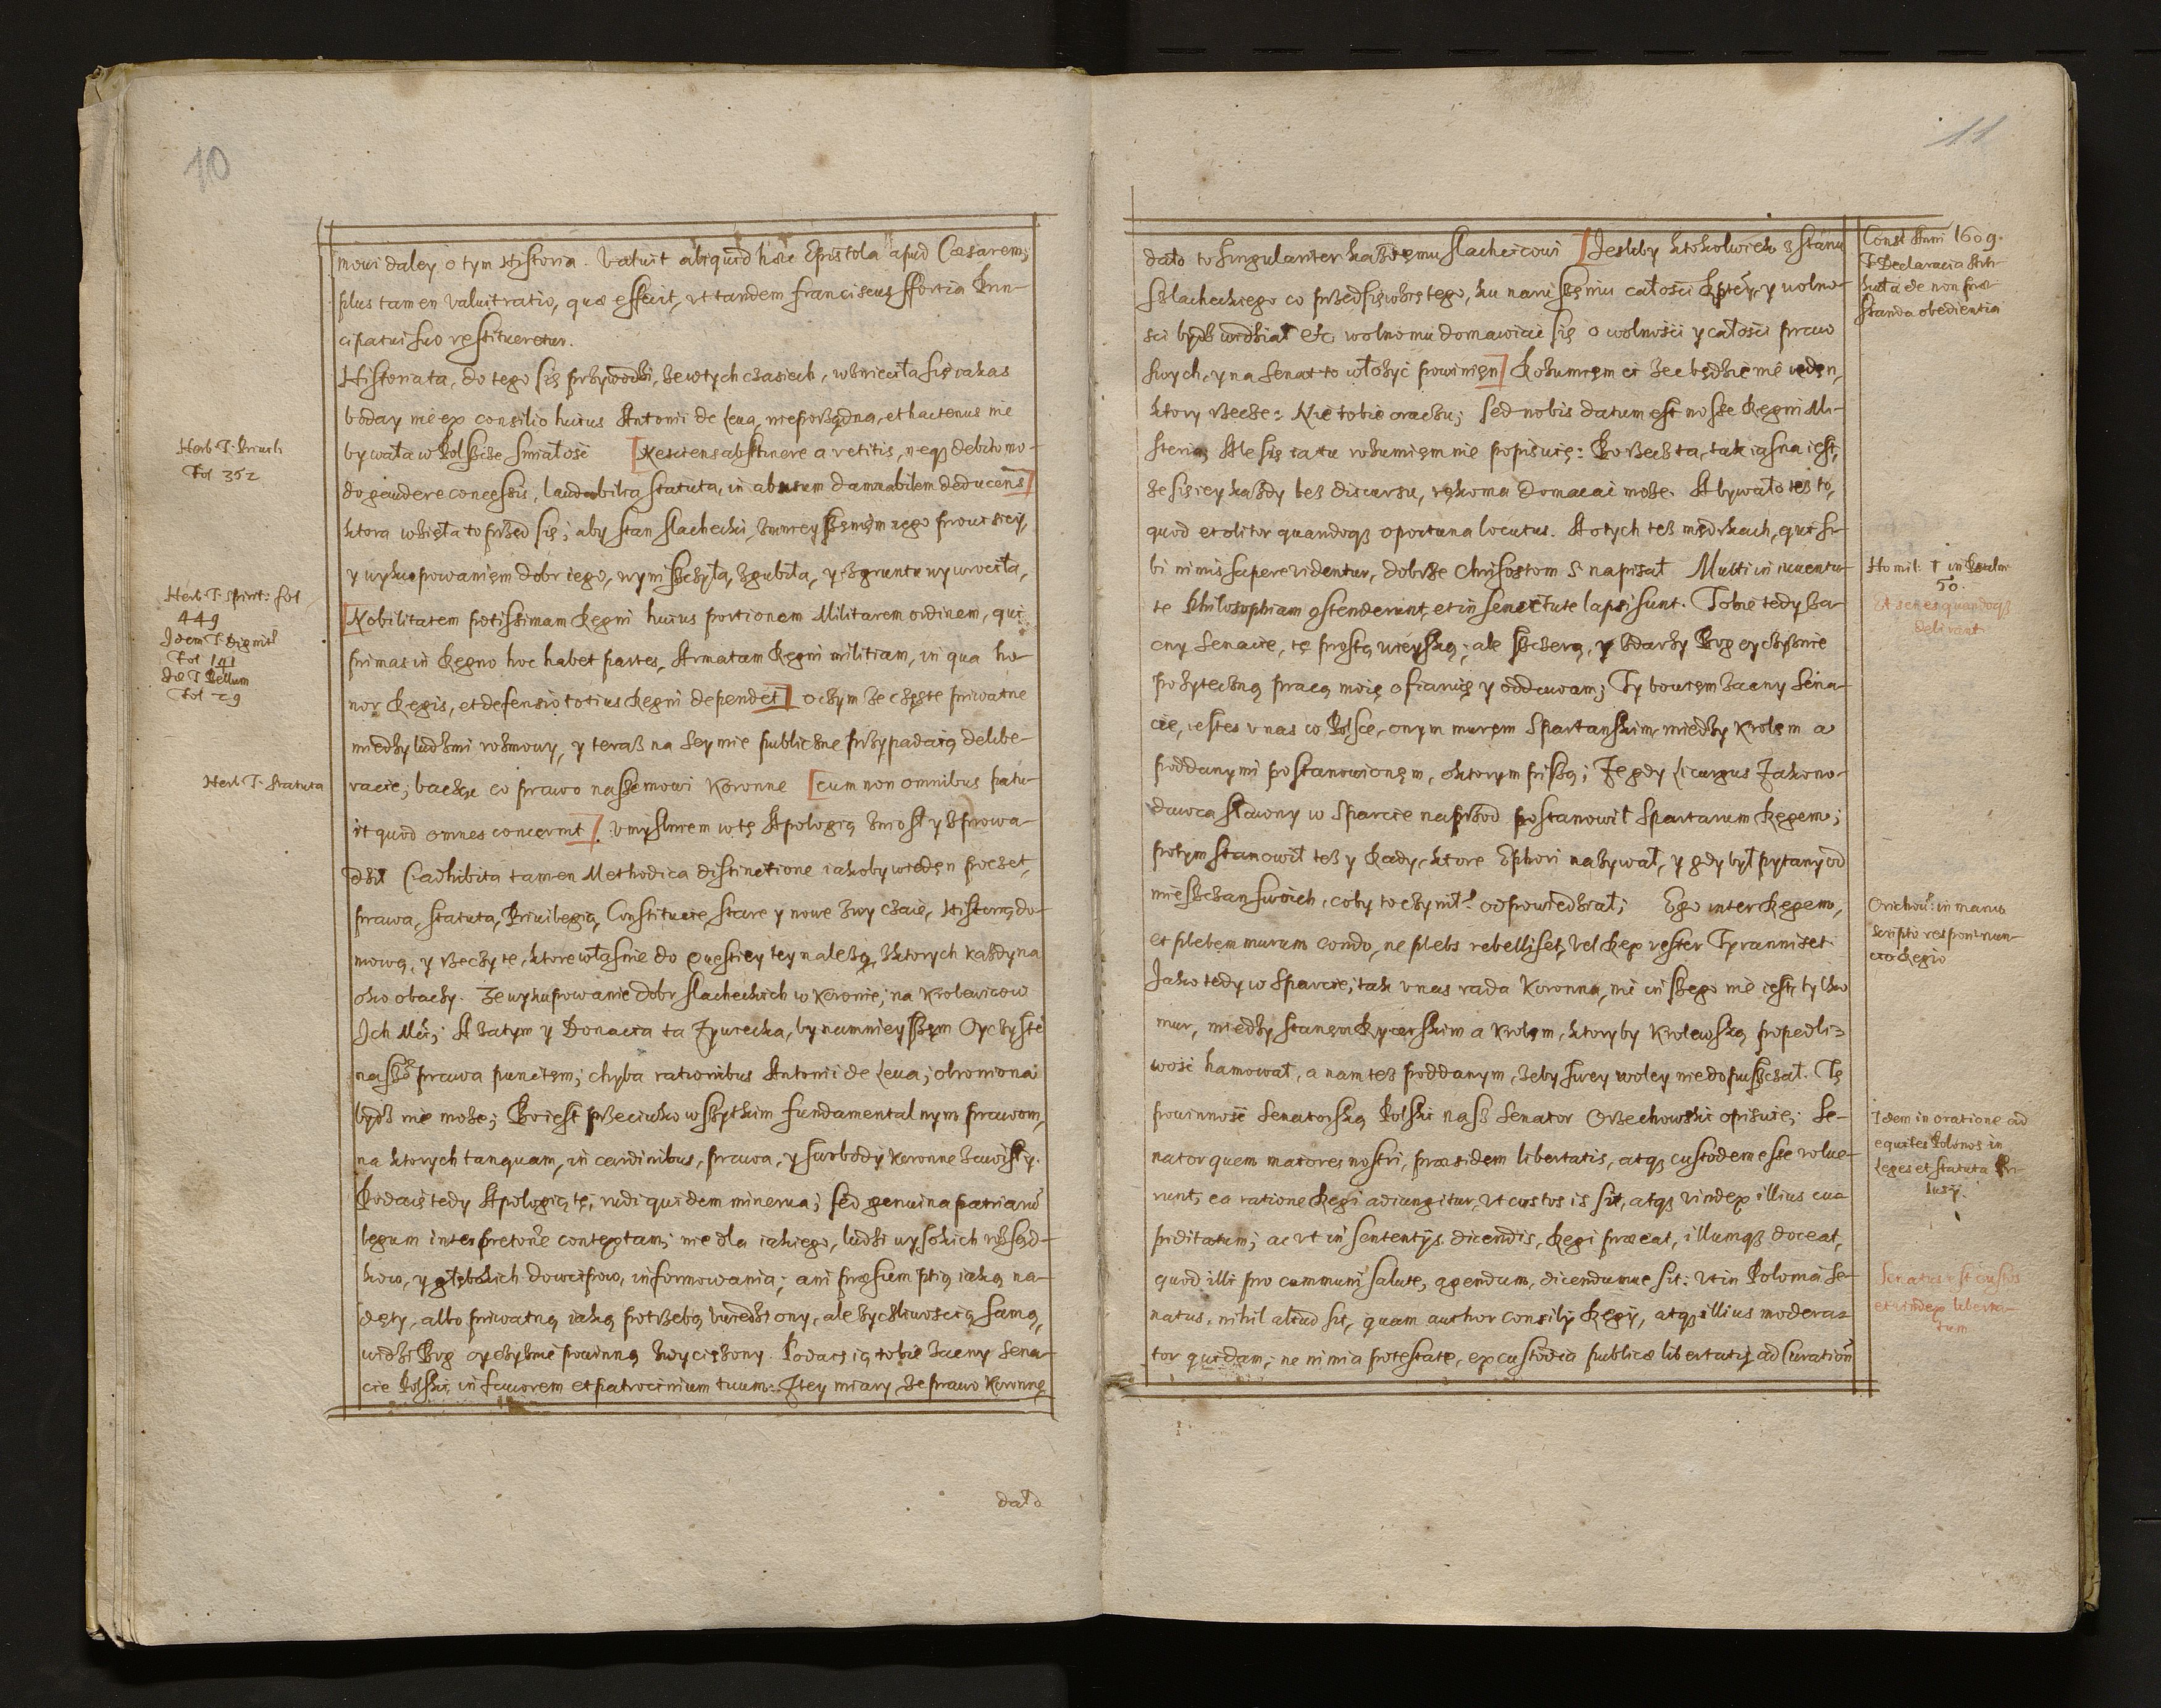 10
mowi daley o tym Historia. Valuit aliquid haec Epistola apud Caesarem;
plus tamen valuit ratio, quae effecit, vt tandem Franciscus Sfortia Prin-
cipatui suo restitueretur.
Historia ta, do tego się przywodzi, że w tych czasiech, wznieciła się iakas
boday nie ex consilio huius Antonii de Leua, nieporządna, et hactenus nie
bywała w Polszcze smiałość [Nesciens abstinere a vetitis, neq debito mo-
do gaudere concessis, laudabilia statuta, in abusum damnabilem deducens]
ktora wzięła to przed się; aby stan slachecki, zmnieyszeniem iego prowisiey,
y wykupowaniem dobr iego, wyniszczyła, zgubiła, y z gruntu wywrociła,
[Nobilitatem potissimam Regni huius portionem Militarem ordinem, qui
primas in Regno hoc habet partes, Armatam Regni militiam, in qua ho-
nor Regis, et defensio totius Regni dependet] o czym że częste priwatne
miedzy ludzmi rozmowy, y teraz na Seymie publiczne przypadaią delibe-
racie; baczę co prawo nasze mowi Koronne [cum non omnibus patu-
it quod omnes concernit]. Vmyslniem w tę Apologią zniosł y zprowa-
dził (adhibita tamen Methodica distinctione iakoby w ieden poczet,
prawa, Statuta, Priuilegia, Constitucie, stare y nowe zwyczaie, Historią do-
mową, y rzeczy te, ktore własnie do questiey tey należą, z ktorych każdy na
oko obaczy. Że wykupowanie dobr slacheckich w Koronie; na Krolewicow
Ich Mci; A zatym y Donacia ta Żywiecka, by namnieyszem Oyczyste
naszo prawa punctem; chyba rationibus Antonii de Leua; obroniona
bydz nie może; Bo iest przeciwko wszytkim fundamentalnym prawom,
na ktorych tanquam, in cardinibus, prawa, y swobody Koronne zawisły.
Podaię tedy Apologią tę, rudi quidem minerua; sed genuina patriarum
legum interpretatione contextam; nie dla iakiego, ludzi wysokich rozsąd-
kow, y głębokich dowcipow, informowania; ani praesumptią iaką na-
dęty, albo priwatną iaką potrzebą uwiedziony, ale życzliwoscią samą,
widzi Bog oyczyznie powinną zwyciężony. Podaię ią tobie zacny Sena-
cie Polski, in fauorem et patrocinium tuum. Z tey miary, że prawo Koronne
dało
Herb T. Priuil:
Fol 352
Herb T. Spirit: fol
449
Idem T. Dignit
Fol 141
Id T Bellum
Fol 29
Herb T. Statuta
11
dało to singulariter każdemu slachcicowi [Jesliby ktokolwiek z stanu
szlacheckiego co przedsięwziętego, ku naruszeniu całosci Rptey, y wolno-
sci bydz widział etc wolno mu domawiać się o wolności y całości praw
swych, y na Senat to włożyć powinien] Rozumiem ci że będzie nie ieden,
ktory rzecze: Nie tobie oraczu; sed nobis datum est nosse Regni Mi-
steria; Ale się ia tu rozumiem nie popisuię: Bo rzecz ta, tak iasna iest,
że się iey każdy bez discursu, rękoma domacać może. A bywało też to,
quod et olitor quandoq oportuna locutus. A o tych też mędrkach, qui si-
bi nimis sapere videntur, dobrze Chrisostom S. napisał Multi in iuuentu-
te Philosophiam ostenderunt, et in senectute lapsi sunt. Tobie tedy za-
cny Senacie, tę prostą wieyską; ale szczerą, y zdarzy Bog oyczyznie
pożyteczną pracą moię ofiaruię y oddawam; Ty bowiem zacny Sena-
cie, iestes v nas w Polsce, onym murem Spartanskim, miedzy Krolem a
poddanymi postanowionem, o ktorym piszą; Że gdy Licurgus Zakono-
dawca sławny w Sparcie naprzod postanowił Spartanum Regem;
potym stanowił też y Rady, ktore Ephori nazywał, y gdy był pytany od
mieszczan swoich, coby to czynił? odpowiedział; Ego inter Regem,
et plebem murum condo, ne plebs rebelliset, vel Rex vester Tyranniset.
Jako tedy w Sparcie; tak v nas rada Koronna, nic inszego nie iest, tylko
mur, miedzy stanem Rycerskim a Krolem, ktoryby Krolewską popedli-
wość hamował, a nam też poddanym, żeby swey woley nie dopuszczał. Tę
powinność Senatorską Polski nasz Senator Orzechowski opisuie; Se-
nator quem maiores nostri, praesidem libertatis, atq custodem esse volue-
runt, ea ratione Regi adiungitur, vt custos is sit, atq vindex illius cu-
piditatum; ac vt in sententijs dicendis, Regi praeeat, illumq doceat,
quod illi pro communi salute, agendum, dicendumue sit: vt in Polonia Se-
natus, nihil aliud sit, quam author consilij Regij, atq illius modera-
tor quidam; ne nimia potestate, ex custodia publicae libertatis, ad Curationem
Const Anni 1609.
T Declaracia Arti-
kuła de non prae-
standa obedientia
Homil: 1 in Psalm
50.
Et senes quandoq
delirant
Orichou: in manu
scripto respons nun-
cio Regio
Idem in oratione ad
equites Polonos in
Leges et statuta Pri-
lusij.
Senatus est custos
et vindex liberta-
tum